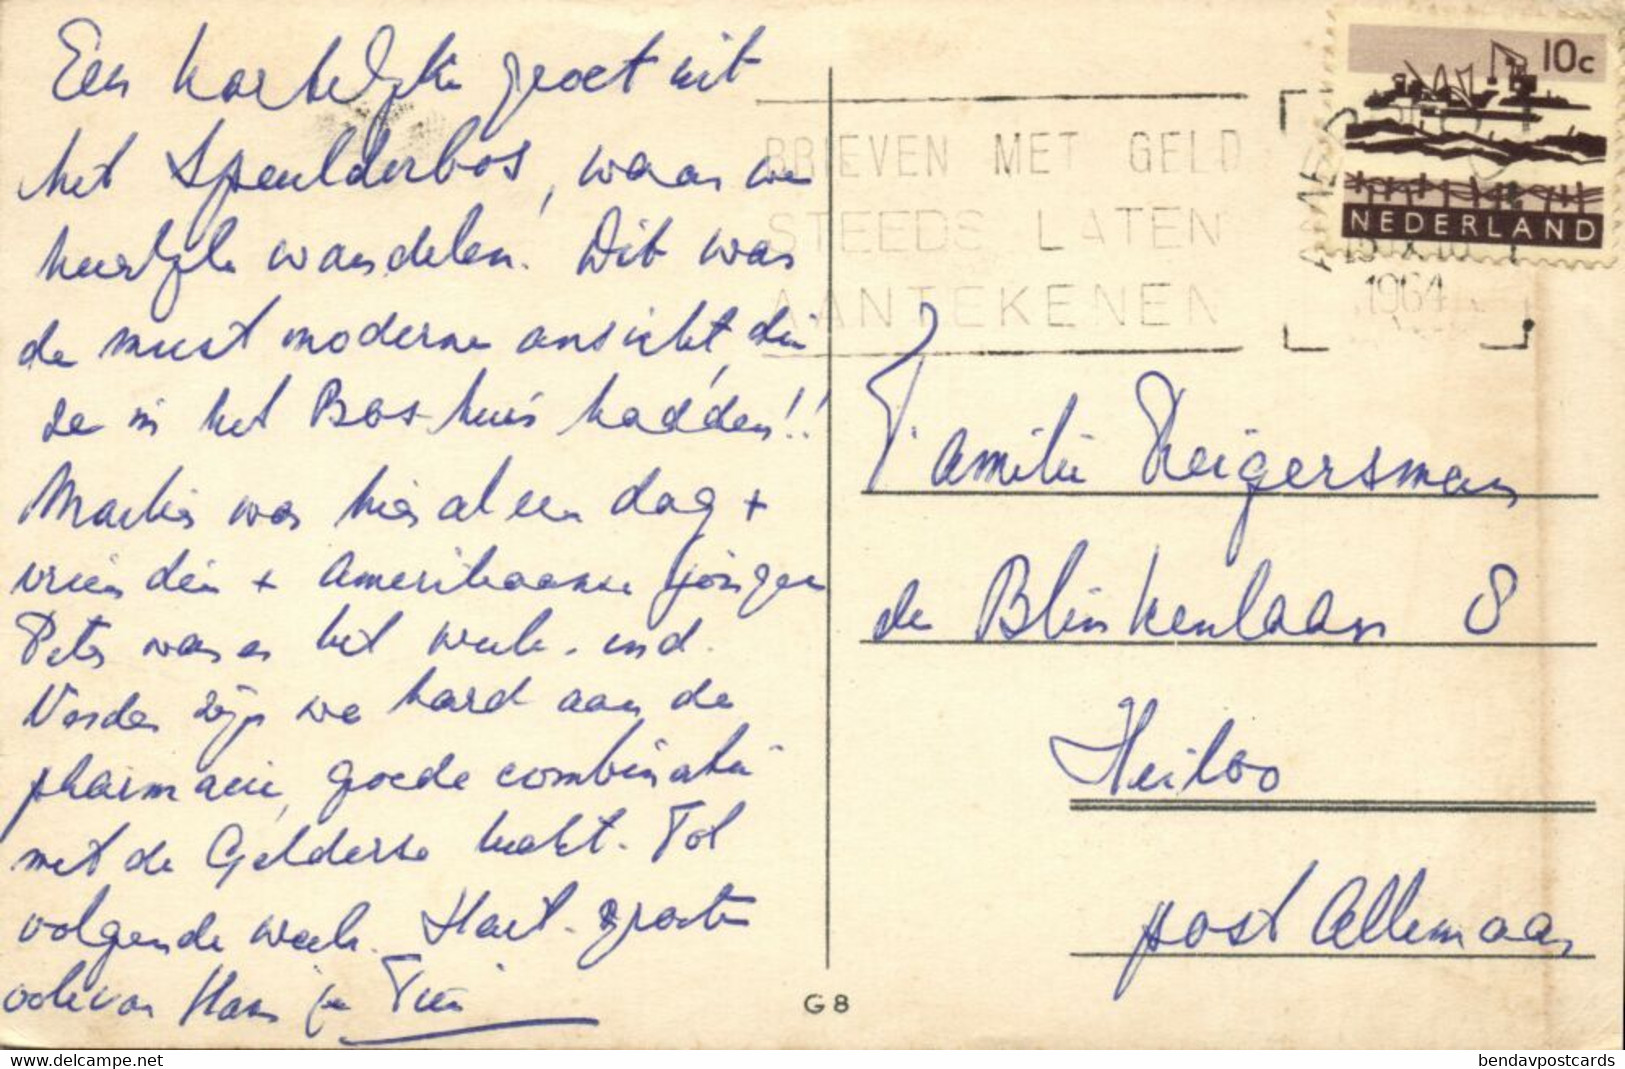 Een hartelijke groet uit
het Speulderbos, waar we
heerlijk wandelen. Dit was
de meest moderne ansicht, die
ze in het Boshuis hadden!!
was hier al een dag +
vriendin + Amerikaanse jongen
Peter was er het week-end.
Verder zijn we hard aan de
pharmacie, goede combinatie
met de Gelderse lucht. Tot
volgende week. Hart. groeten
ook van Hans je Tien
BRIEVEN MET GELD
STEEDS LATEN
AANTEKENEN
10c
NEDERLAND
1964
Familie Reigersman
de Blinkenlaan 8
Heiloo
post Alkmaar
G8
delcampe.net
bendavpostcards